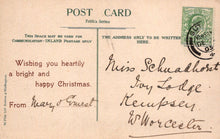 POST CARD
THIS SPACE MAY BE USED FOR
COMMUNICATION - INLAND POSTAGE ONLY
THE ADDRESS ONLY TO BE WRITTEN HERE.
Wishing you heartily
a bright and
happy Christmas.
From Mary & Ernest
Miss Schnadhorst
Ivy Lodge
Kempsey
Nr Worcester